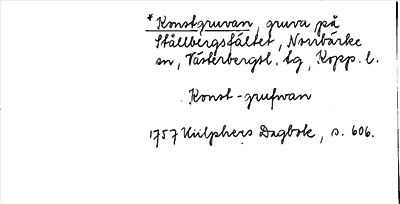 * Konstgruvan, gruva på
Ställbergsfältet, Norrbärke
sn, Västerbergsl. tg, Kopp. l.
Konst-grufwan
1757 Hülphers Dagbok, s. 606.